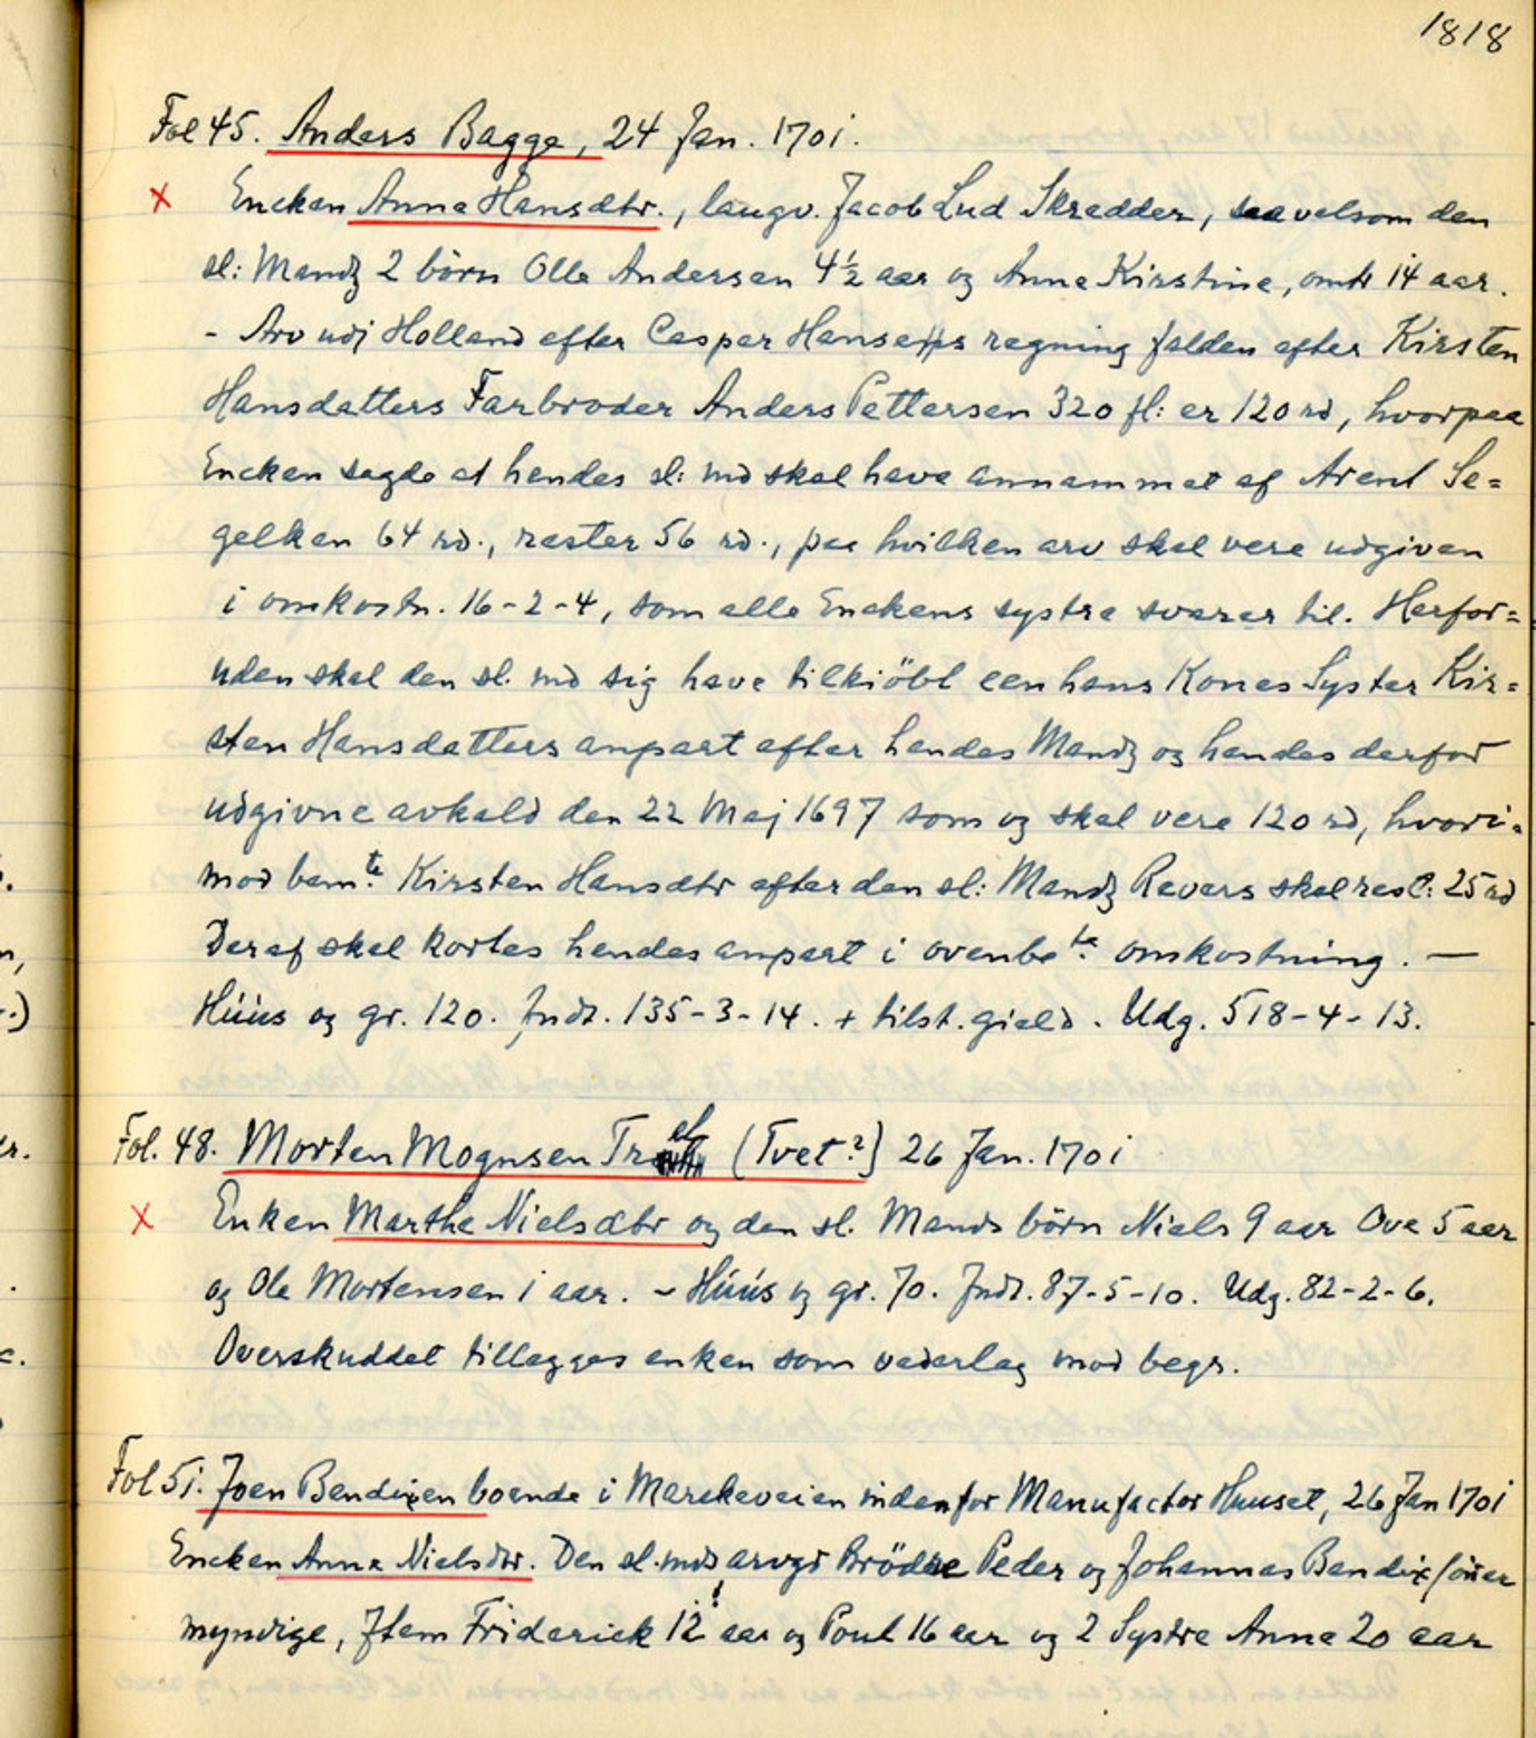 1818
Fol 45. Anders Bagge, 24 Jan. 1701.
x Encken Anne Hansdtr., laugv. Jacob Lud Skredder, saavelsom den
sl: Mandz 2 börn Olle Andersen 4½ aar og Anne Kirstine, omtr 14 aar.
- Arv udj Holland efter Casper Hansens regning falden efter Kirsten
Hansdatters Farbroder Anders Pettersen 320 fl: er 120 rd, hvorpaa
Encken sagde at hendes sl: md skal have annammet af Arent Se=
gelken 64 rd., rester 56 rd., paa hvilken arv skal vere udgiven
i omkostn. 16-2-4, som alle Enckens systre svarer til. Herfor=
uden skal den sl. md sig have tilkiöbt een hans Kones Syster Kir=
sten Hansdatters anpart efter hendes Mandz og hendes derfor
udgivne avkald den 22 Maj 1697 som og skal vere 120 rd, hvori=
mod bem.te Kirsten Hansdtr efter den sl: Mandz Revers skal rest: 25 rd
Deraf skal kortes hendes anpart i ovenbe.te omkostning. —
Húús og gr. 120. Indt. 135-3-14. + tilst. gield. Udg. 518-4-13.
Fol. 48. Morten Mognsen Tret (Tvet?) 26 Jan. 1701
x Enken Marthe Nielsdtr og den sl. Mands börn Niels 9 aar Ove 5 aar
og Ole Mortensen 1 aar. - Húús og gr. 70. Indt. 87-5-10. Udg. 82-2-6.
Overskuddet tillegges enken som vederlag mod begr.
Fol 51. Joen Bendixen boende i Marckeveien indenfor Manufactor Huuset, 26 Jan 1701
Encken Anne Nielsdtr. Den sl. mds arvgr Brödre Peder og Johannes Bendix
myndige, Item Friderick 12! aar og Poul 16 aar og 2 Systre Anne 20 aar